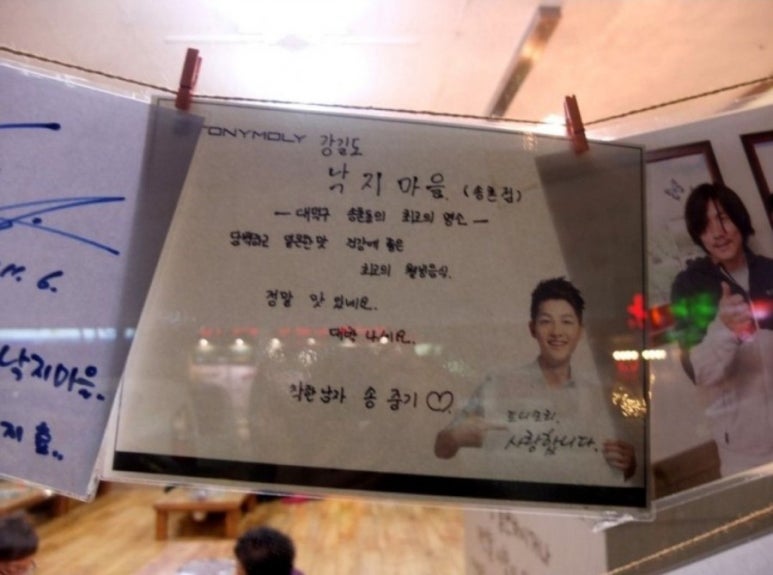 TONYMOLY 강길도
낙지마을. (송촌점)
— 대덕구 송촌동의 최고의 명소 —
담백하고 얼큰한맛 건강에 좋은
최고의 웰빙음식.
정말 맛 있네요.
대박 나세요..
착한남자 송중기♡.
토니모리.
사랑합니다.
6.
낙지마을.